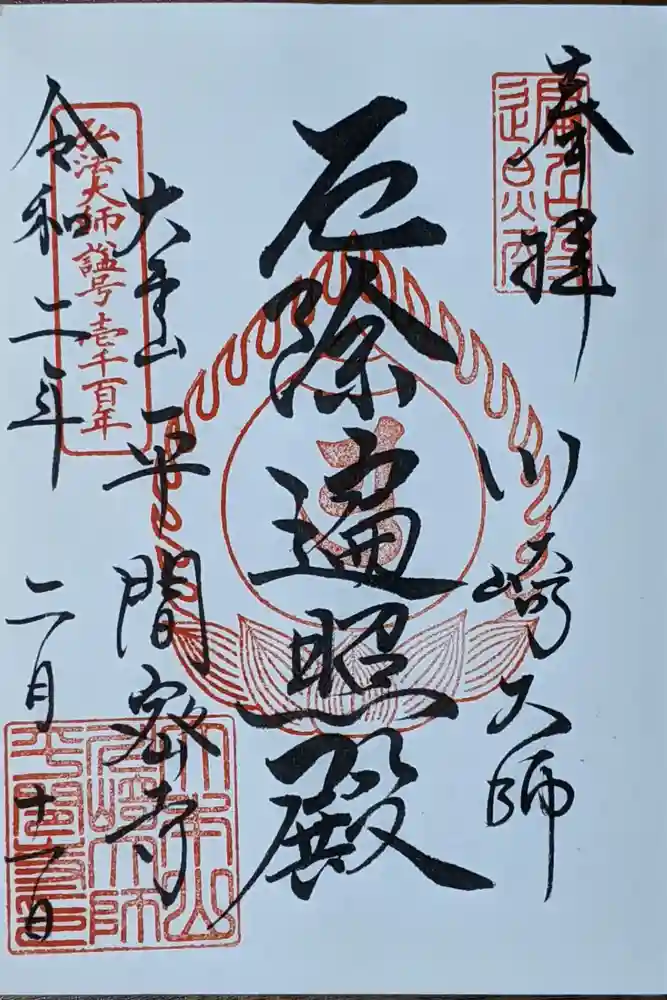 奉拝
川崎大師
厄除遍照殿
大本山平間密寺
弘法大師諡号壱千百年
令和二年二月十一日